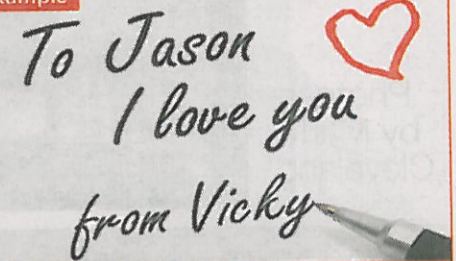 To Jason
I love you
from Vicky